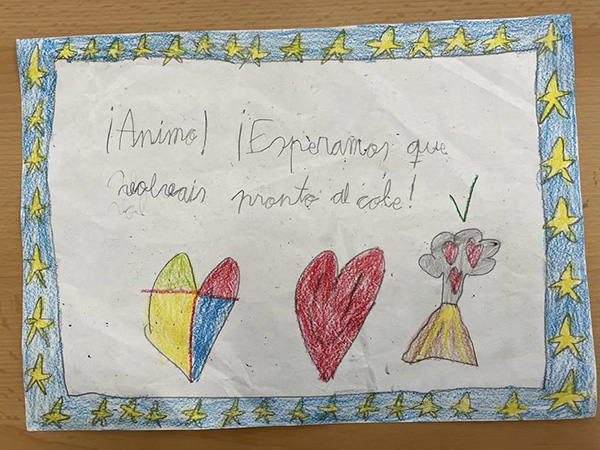 ¡Animo! ¡Esperamos que
volvais pronto al cole!